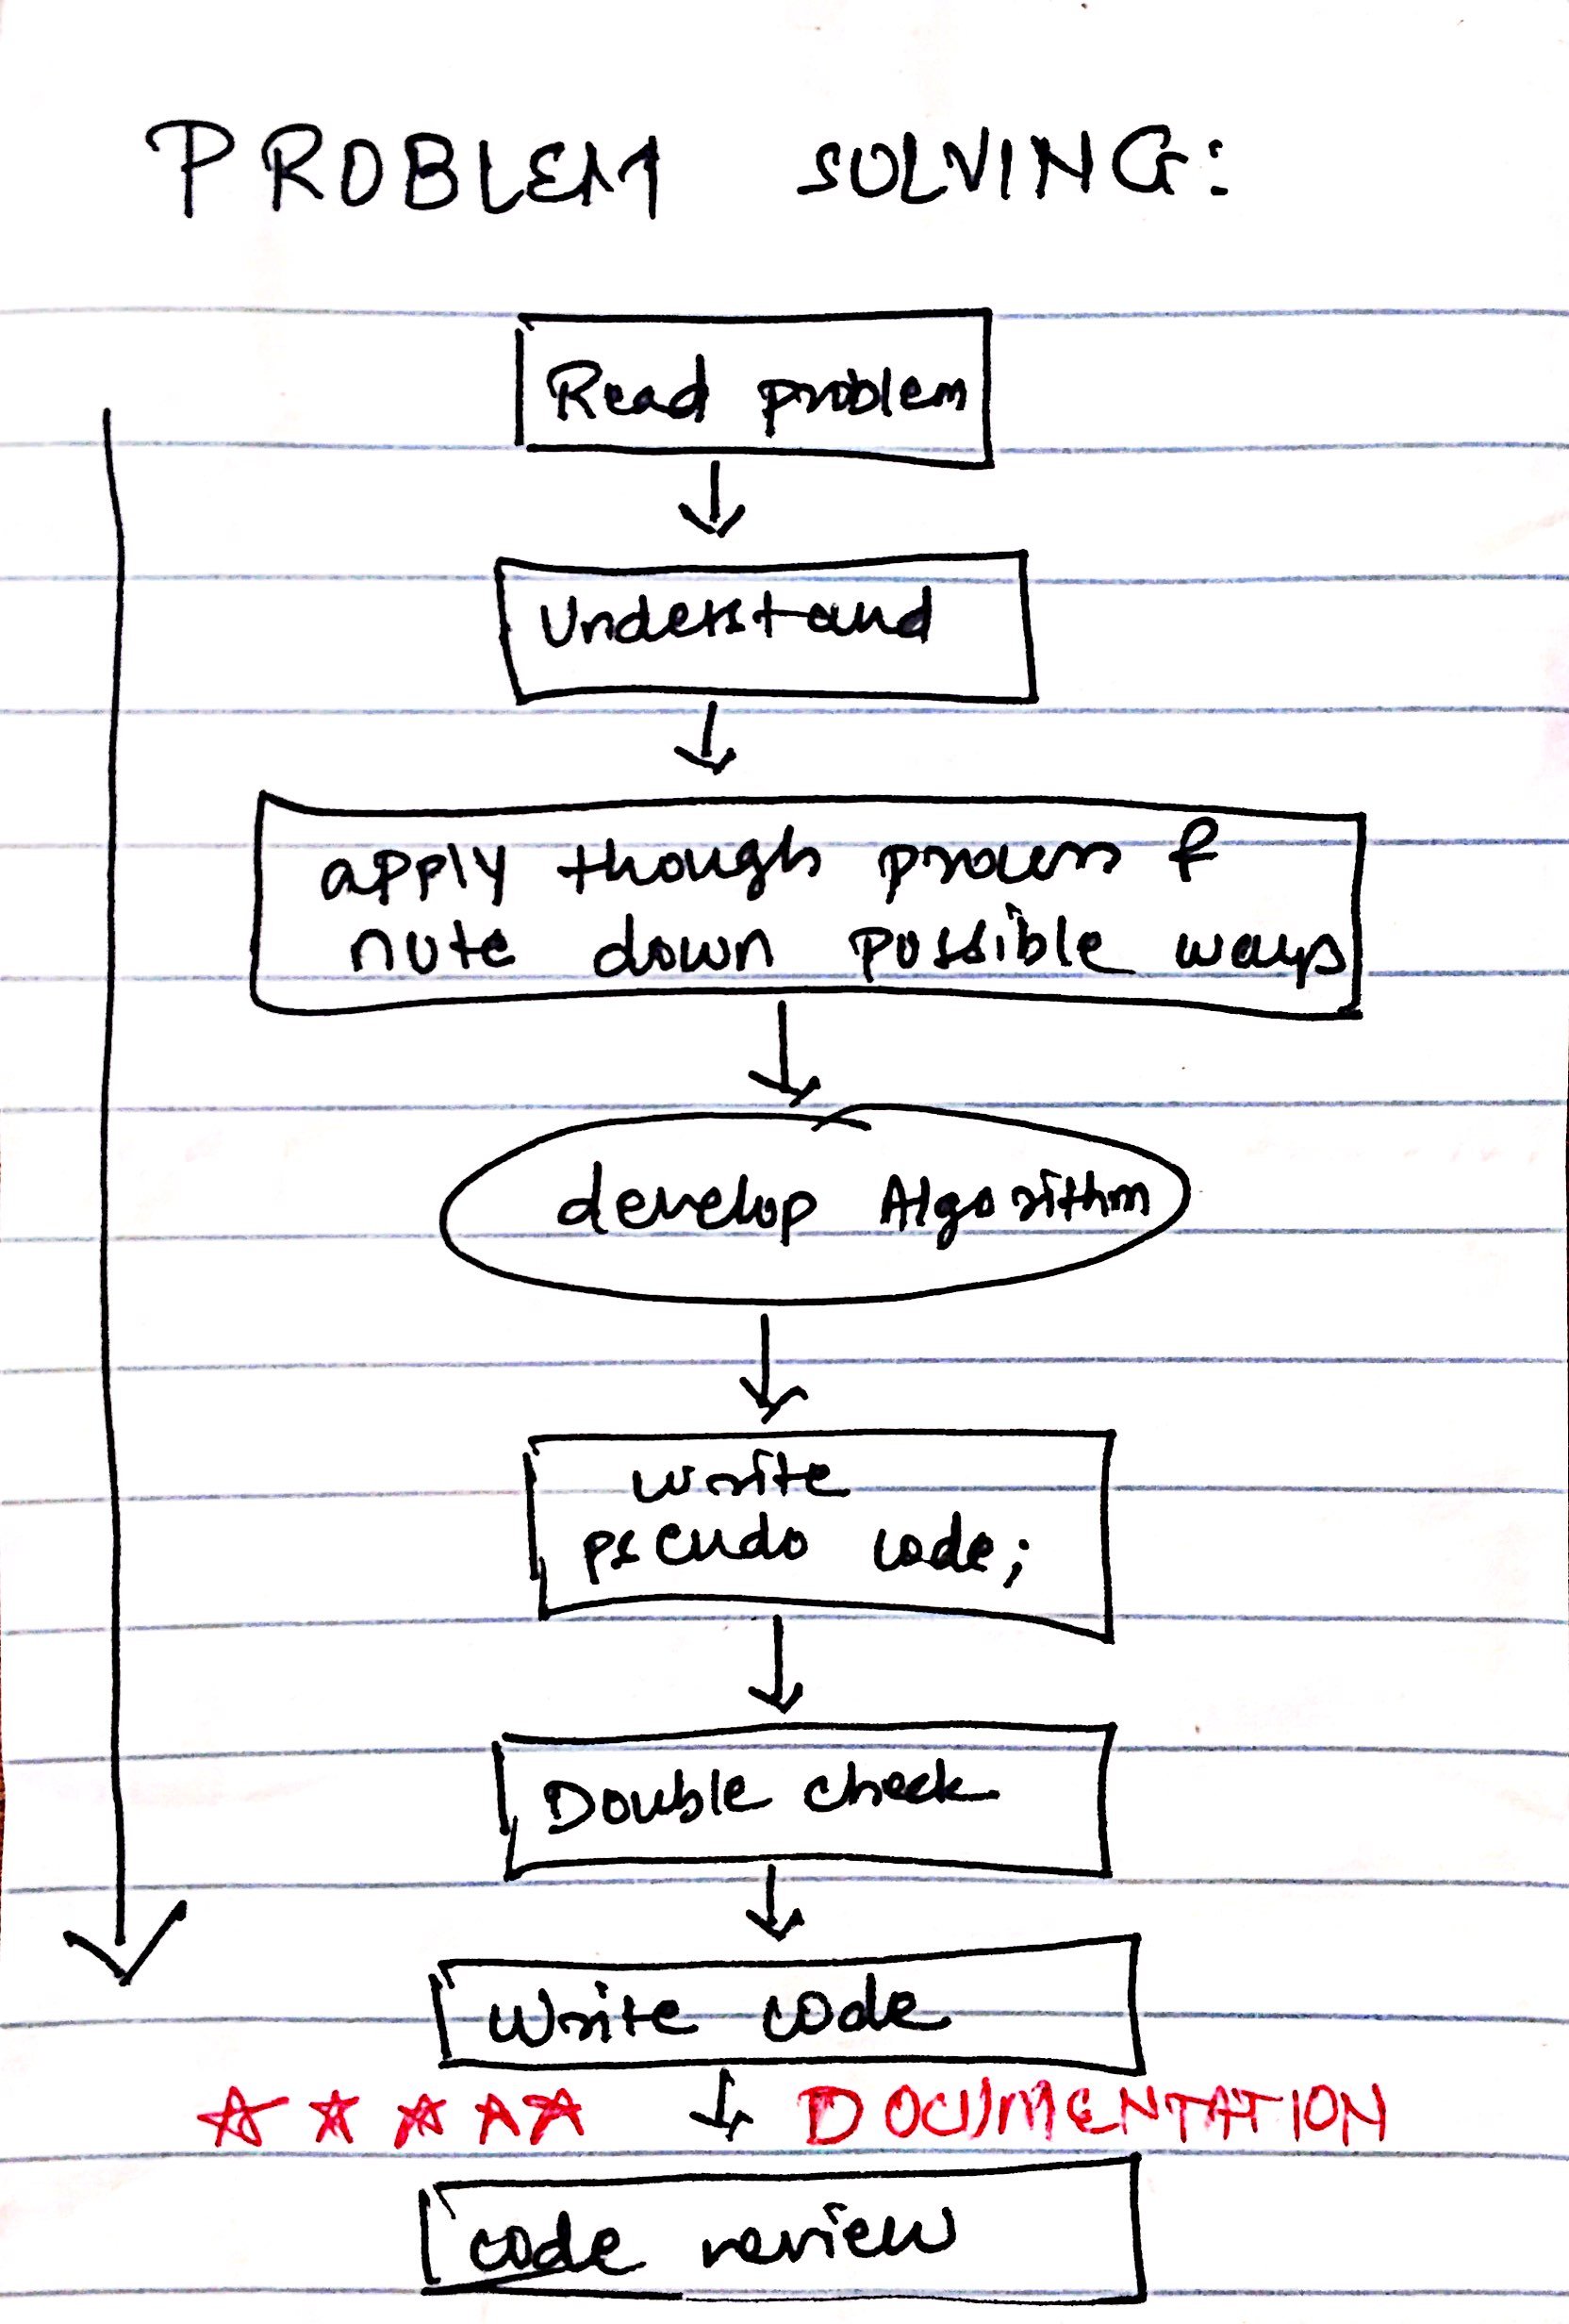 PROBLEM SOLVING:
Read problem
Understand
apply though process &
note down possible ways
develop Algorithm
write
pseudo code;
Double check
Write code
DOCUMENTATION
code review